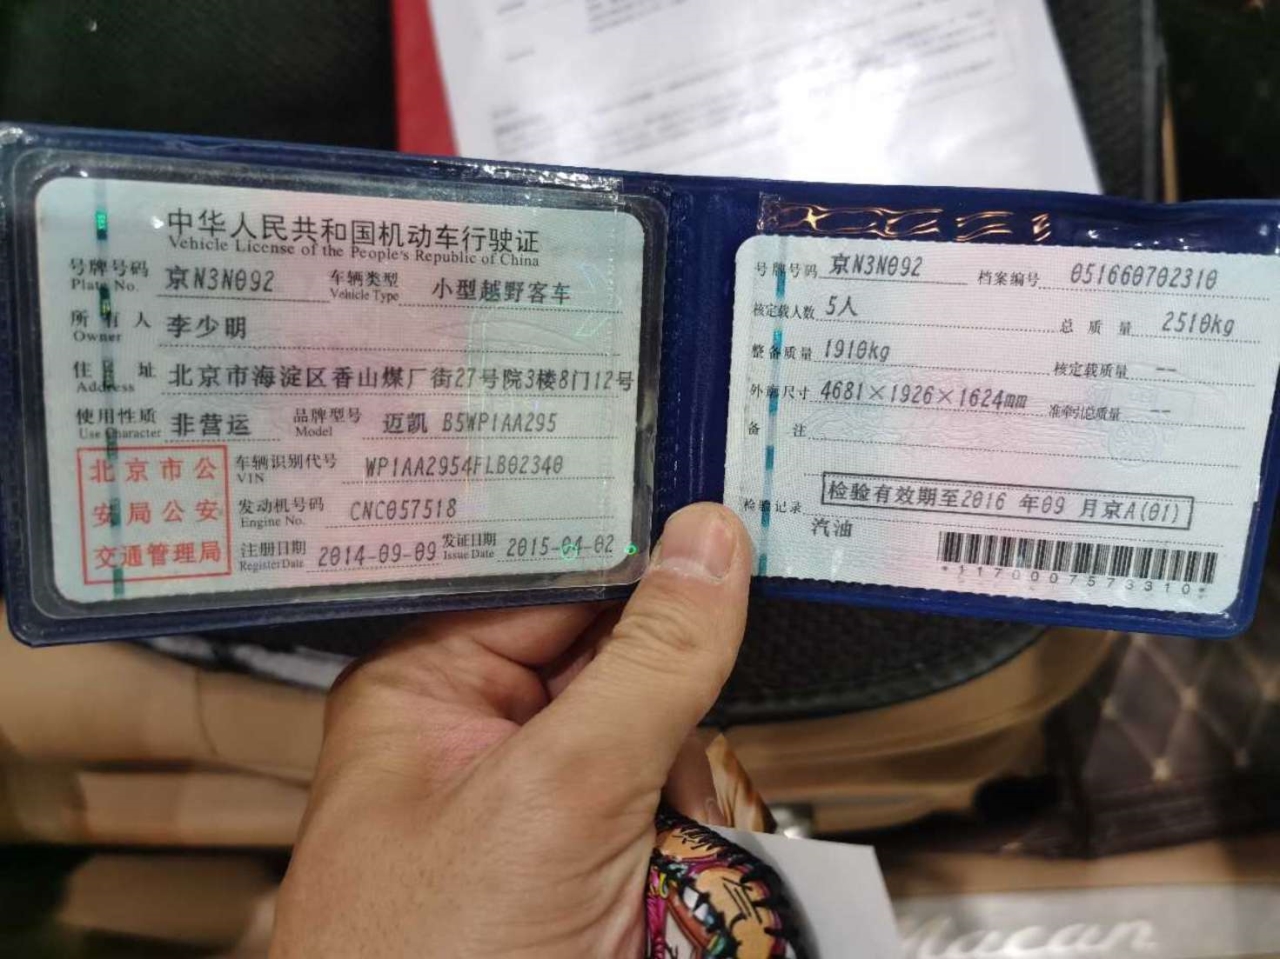 中华人民共和国机动车行驶证
Vehicle License of the People's Republic of China
号牌号码 京N3N092 车辆类型 小型越野客车
Plate No. Vehicle Type
所有人 李少明
Owner
住址 北京市海淀区香山煤厂街27号院3楼8门12号
Address
使用性质 非营运 品牌型号 迈凯 B5WP1AA295
Use Character Model
北京市公
安局公安
交通管理局
车辆识别代号 WP1AA2954FLB02340
VIN
发动机号码 CNC057518
Engine No.
注册日期 2014-09-09 发证日期 2015-04-02
Register Date Issue Date
号牌号码 京N3N092 档案编号 051660702310
核定载人数 5人 总质量 2510kg
整备质量 1910kg 核定载质量 --
外廓尺寸 4681×1926×1624mm 准牵引总质量 --
备注
检验记录 检验有效期至2016 年09 月京A(01)
汽油
*1170007573310*
Macan